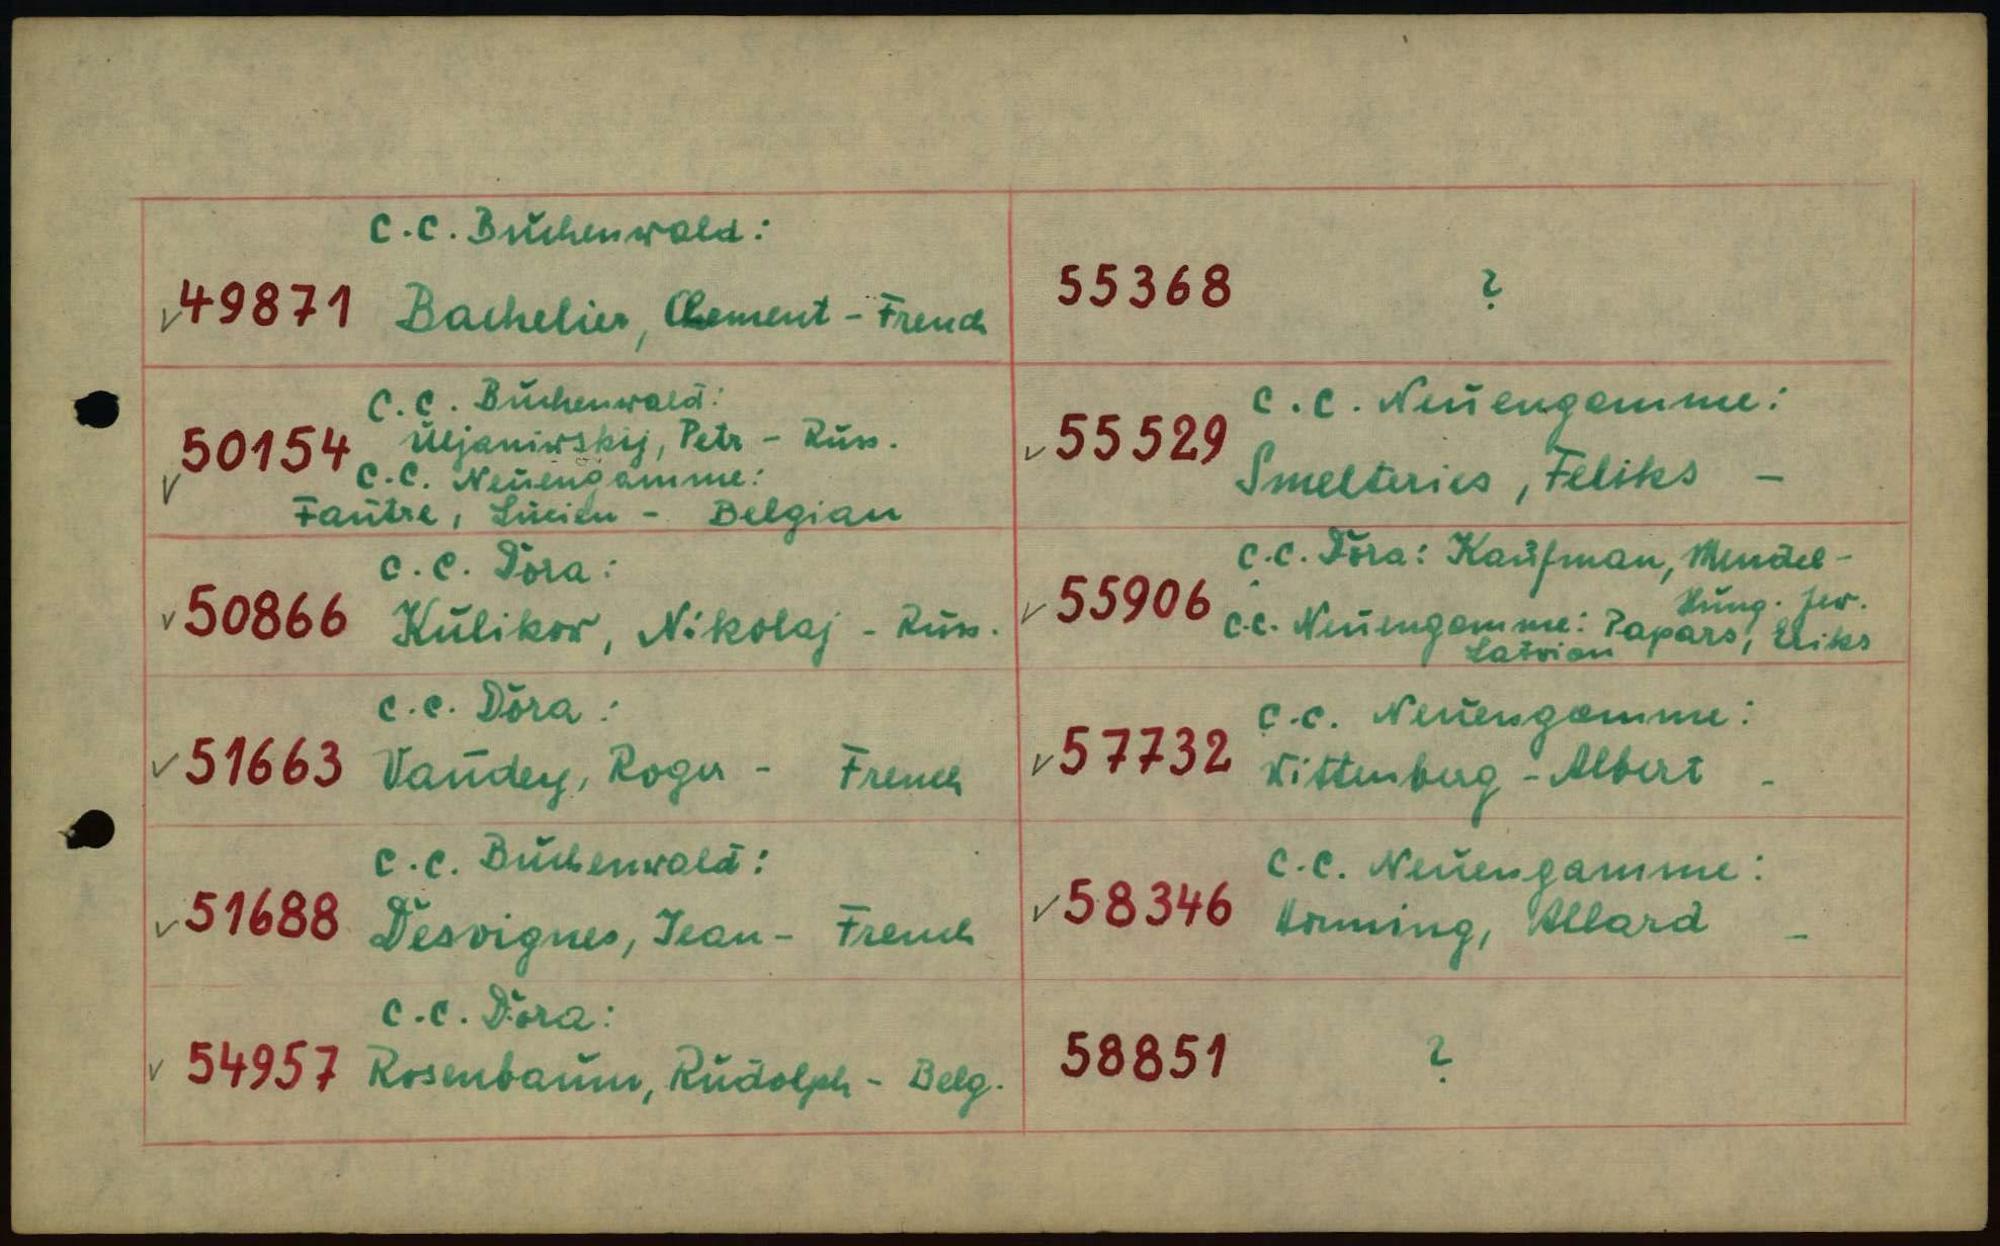 C.C. Buchenwald:
49871 Bachelier, Clement - French
C.C. Buchenwald:
50154 Uljanivskij, Petr - Russ.
C.C. Neuengamme:
Fautre, Lucien - Belgian
C.C. Dora:
50866 Kulikov, Nikolaj - Russ.
C.C. Dora:
51663 Vaudey, Roger - French
C.C. Buchenwald:
51688 Desvignes, Jean - French
C.C. Dora:
54957 Rosenbaum, Rudolph - Belg.
55368 ?
C.C. Neuengamme:
55529 Smelteries, Feliks -
C.C. Dora: Kaufman, Mendel -
Hung. Jew.
55906
C.C. Neuengamme: Papars, Eriks
Latvian
C.C. Neuengamme:
57732 Wittenberg - Albert -
C.C. Neuengamme:
58346 Allard -
58851 ?